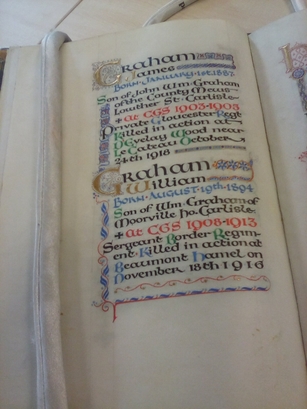 Graham
James
Born January 1st 1887.
Son of John Wm. Graham
of the County Mews
Lowther St. Carlisle.
+ at CGS 1903-1905
Private Gloucester Regt
Killed in action at
Evelay Wood near
Le Cateau October
24th 1918
Graham
William
Born August 19th 1894
Son of Wm. Graham of
Moorville Ho. Carlisle.
+ at CGS 1908-1913
Sergeant Border Regim-
ent. Killed in action at
Beaumont Hamel on
November 18th 1916